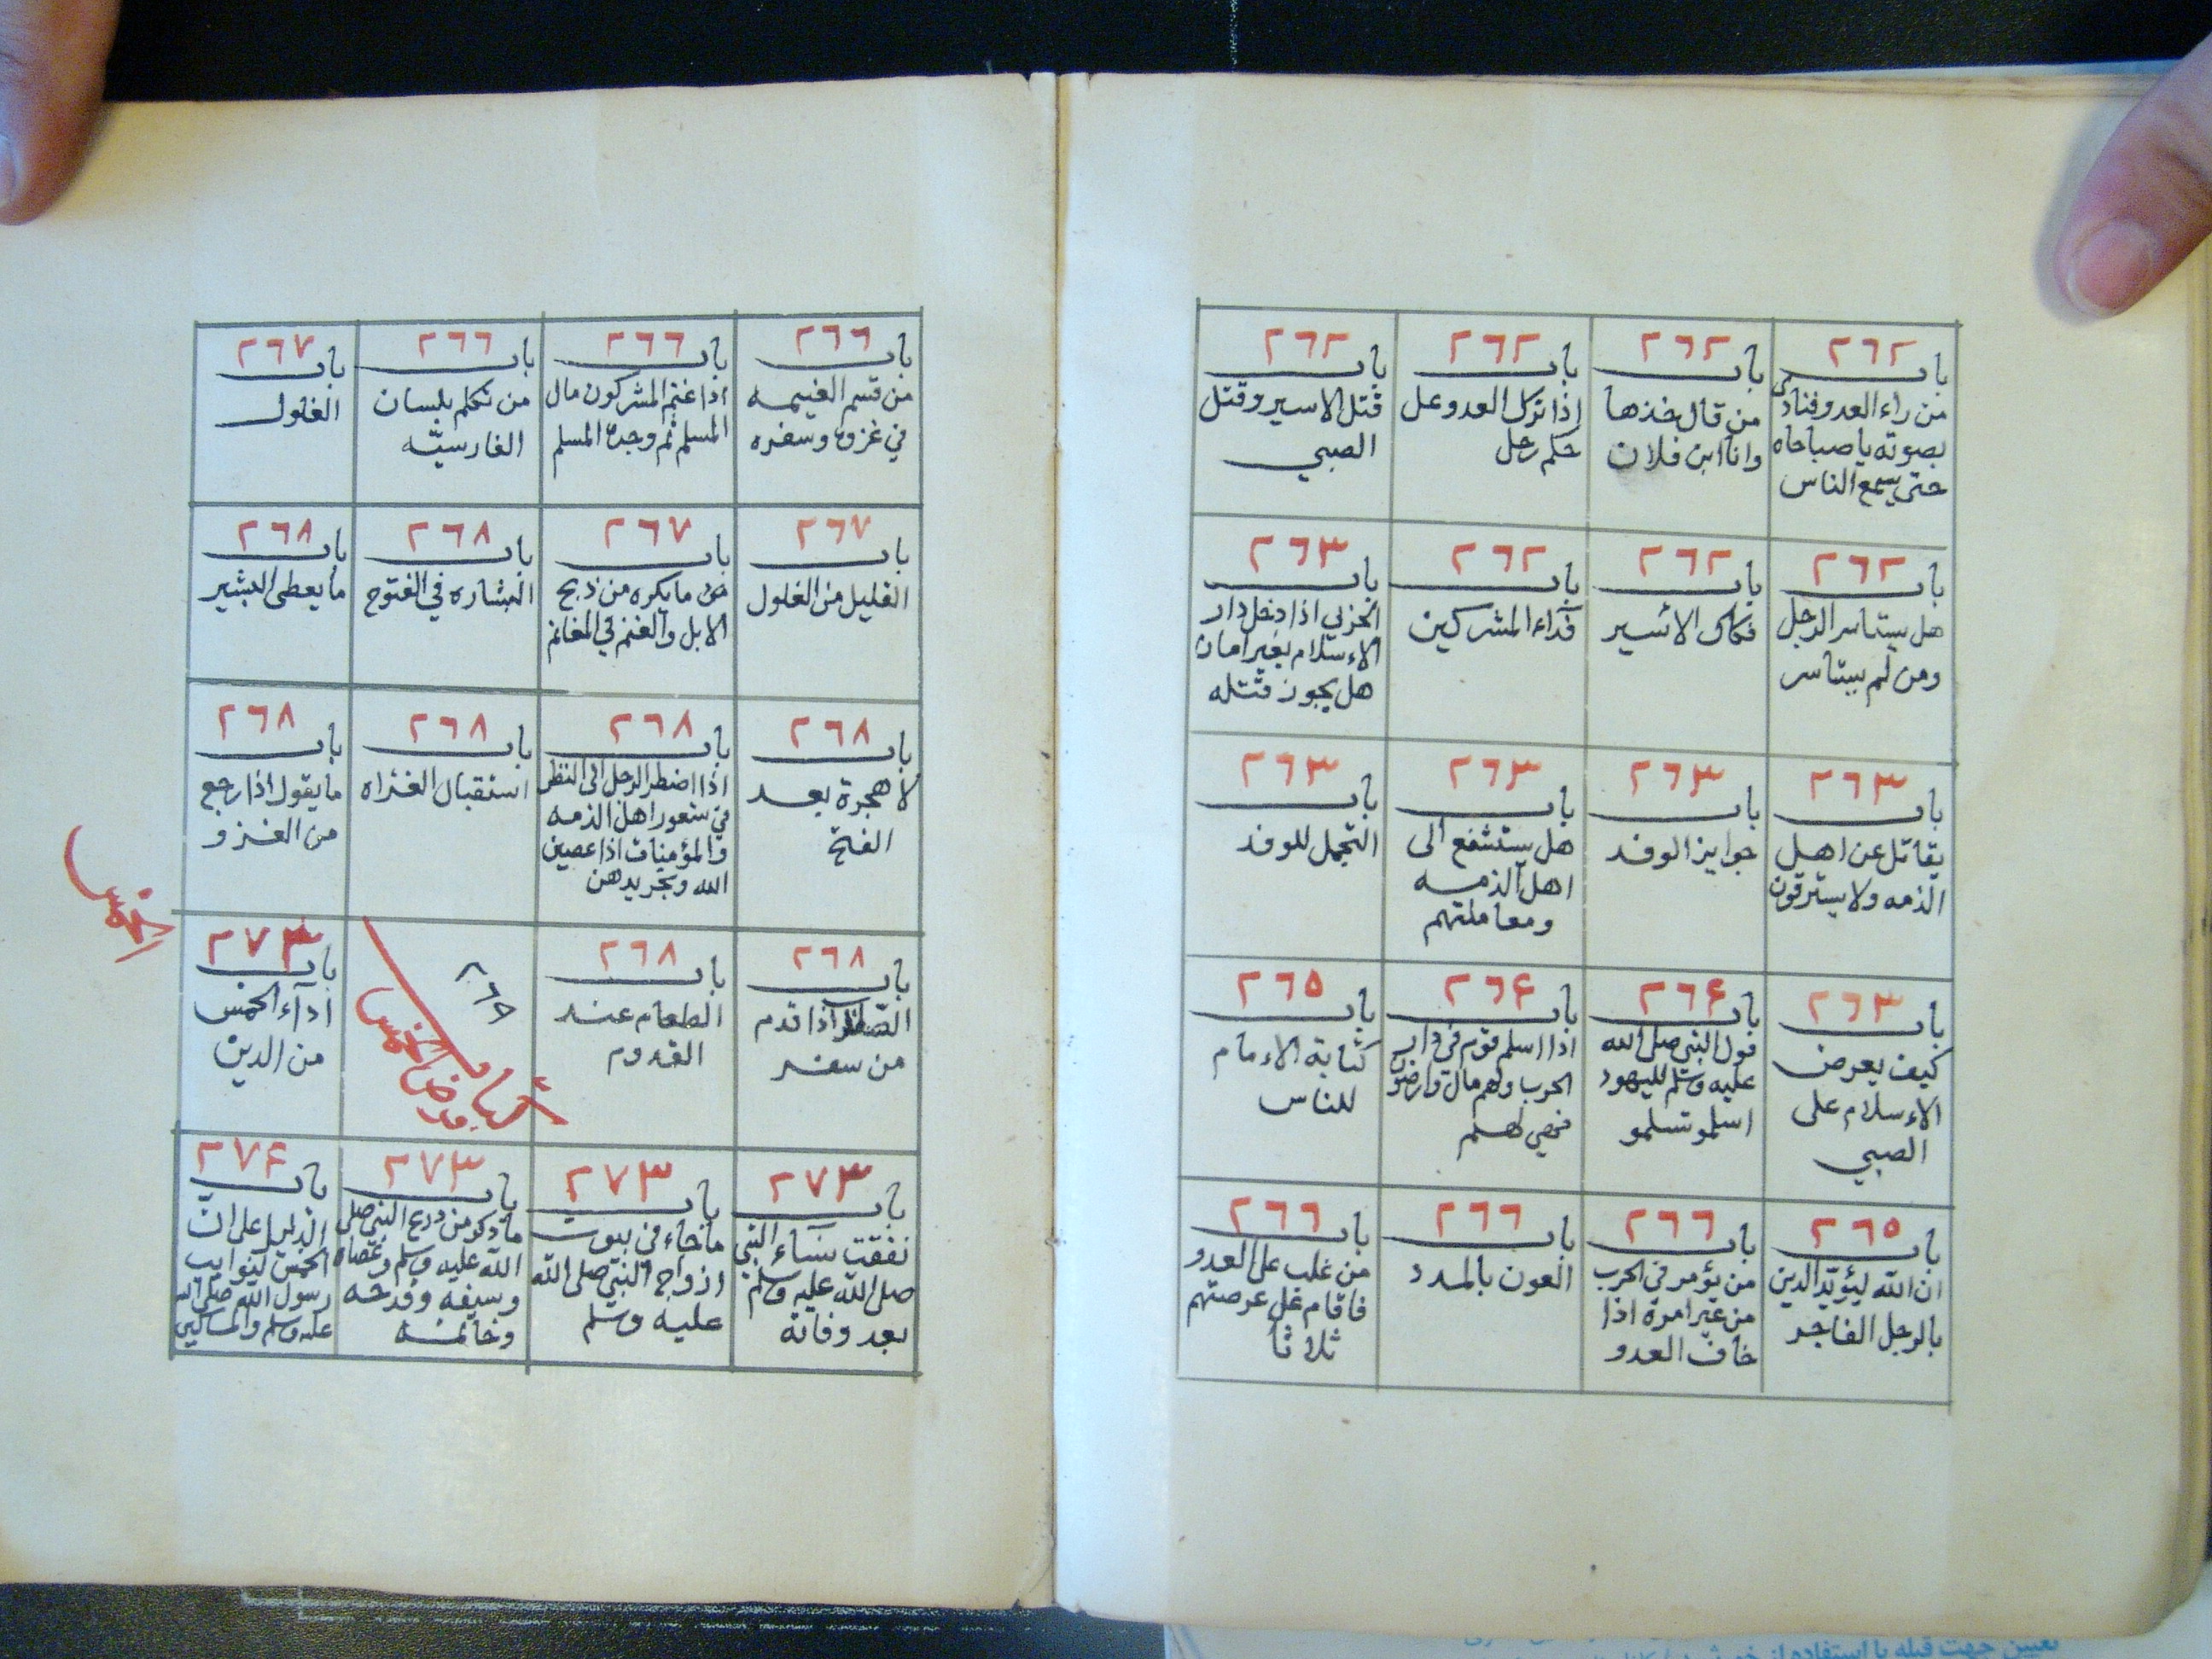 ٢٦٢
باب
من راء العدو فنادى
بصوته يا صباحاه
حتى يسمع الناس
٢٦٢
باب
من قال خذها
وانا ابن فلان
٢٦٢
باب
اذا نزل العدو على
حكم رجل
٢٦٢
باب
قتل الاسير وقتل
الصبي
٢٦٢
باب
هل يستاسر الرجل
ومن لم يستاسر
٢٦٢
باب
فكاك الاسير
٢٦٢
باب
فداء المشركين
٢٦٣
باب
الحربي اذا دخل دار
الاسلام بغير امان
هل يجوز قتله
٢٦٣
باب
يقاتل عن اهل
الذمه ولا يسترقون
٢٦٣
باب
جوايز الوفد
٢٦٣
باب
هل يستشفع الى
اهل الذمه
ومعاملتهم
٢٦٣
باب
التجمل للوفد
٢٦٣
باب
كيف يعرض
الاسلام على
الصبي
٢٦۴
باب
قول النبي صلى الله
عليه وسلم لليهود
اسلمو تسلمو
٢٦۴
باب
اذا اسلم قوم في دار
الحرب ولهم مال وارضون
فهي لهم
٢٦٥
باب
كتابة الامام
للناس
٢٦٥
باب
ان الله ليؤيد الدين
بالرجل الفاجر
٢٦٦
باب
من يؤمر في الحرب
من غير امرة اذا
خاف العدو
٢٦٦
باب
العون بالمدد
٢٦٦
باب
من غلب على العدو
فاقام على عرصتهم
ثلاثا
٢٦٦
باب
من قسم الغنيمه
في غزوه وسفره
٢٦٦
باب
اذا غنم المشركون مال
المسلم ثم وجده المسلم
٢٦٦
باب
من تكلم بلسان
الفارسيّه
٢٦٧
باب
الغلول
٢٦٧
باب
القليل من الغلول
٢٦٧
باب
ما يكره من ذبح
الابل والغنم في المغانم
٢٦٨
باب
البشاره في الفتوح
٢٦٨
باب
ما يعطى البشير
٢٦٨
باب
لا هجرة بعد
الفتح
٢٦٨
باب
اذا اضطر الرجل الى النظر
في شعور اهل الذمه
والمؤمنات اذا عصين
الله وتجريدهن
٢٦٨
باب
استقبال الغزاه
٢٦٨
باب
ما يقول اذا رجع
من الغزو
٢٦٨
باب
الصلاة اذا قدم
من سفر
٢٦٨
باب
الطعام عند
القدوم
٢٦٨
كتاب فرض الخمس
الخمس
٢٧٣
باب
اداء الخمس
من الدين
٢٧٣
باب
نفقت نساء النبي
صلى الله عليه وسلم
بعد وفاته
٢٧٣
باب
ما جاء في بيوت
ازواج النبي صلى الله
عليه وسلم
٢٧٣
باب
ما ذكر من درع النبي صلى
الله عليه وسلم وعصاه
وسيفه وقدحه
وخاتمه
٢٧۴
باب
الدليل على ان
الخمس لنوايب
رسول الله صلى الله
عليه وسلم والمساكين